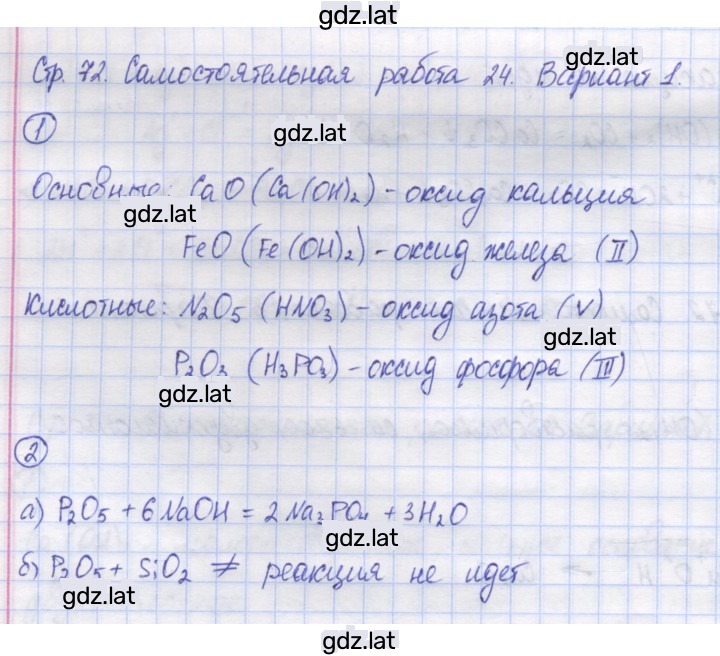 gdz.lat
Стр. 72. Самостоятельная работа 24. Вариант 1.
gdz.lat
1
gdz.lat
Основные: CaO (Ca(OH)₂) - оксид кальция
gdz.lat
FeO (Fe(OH)₂) - оксид железа (II)
Кислотные: N₂O₅ (HNO₃) - оксид азота (V)
gdz.lat
P₂O₃ (H₃PO₃) - оксид фосфора (III)
gdz.lat
2
а) P₂O₅ + 6NaOH = 2Na₃PO₄ + 3H₂O
gdz.lat
б) P₂O₅ + SiO₂ ≠ реакция не идет
gdz.lat
gdz.lat